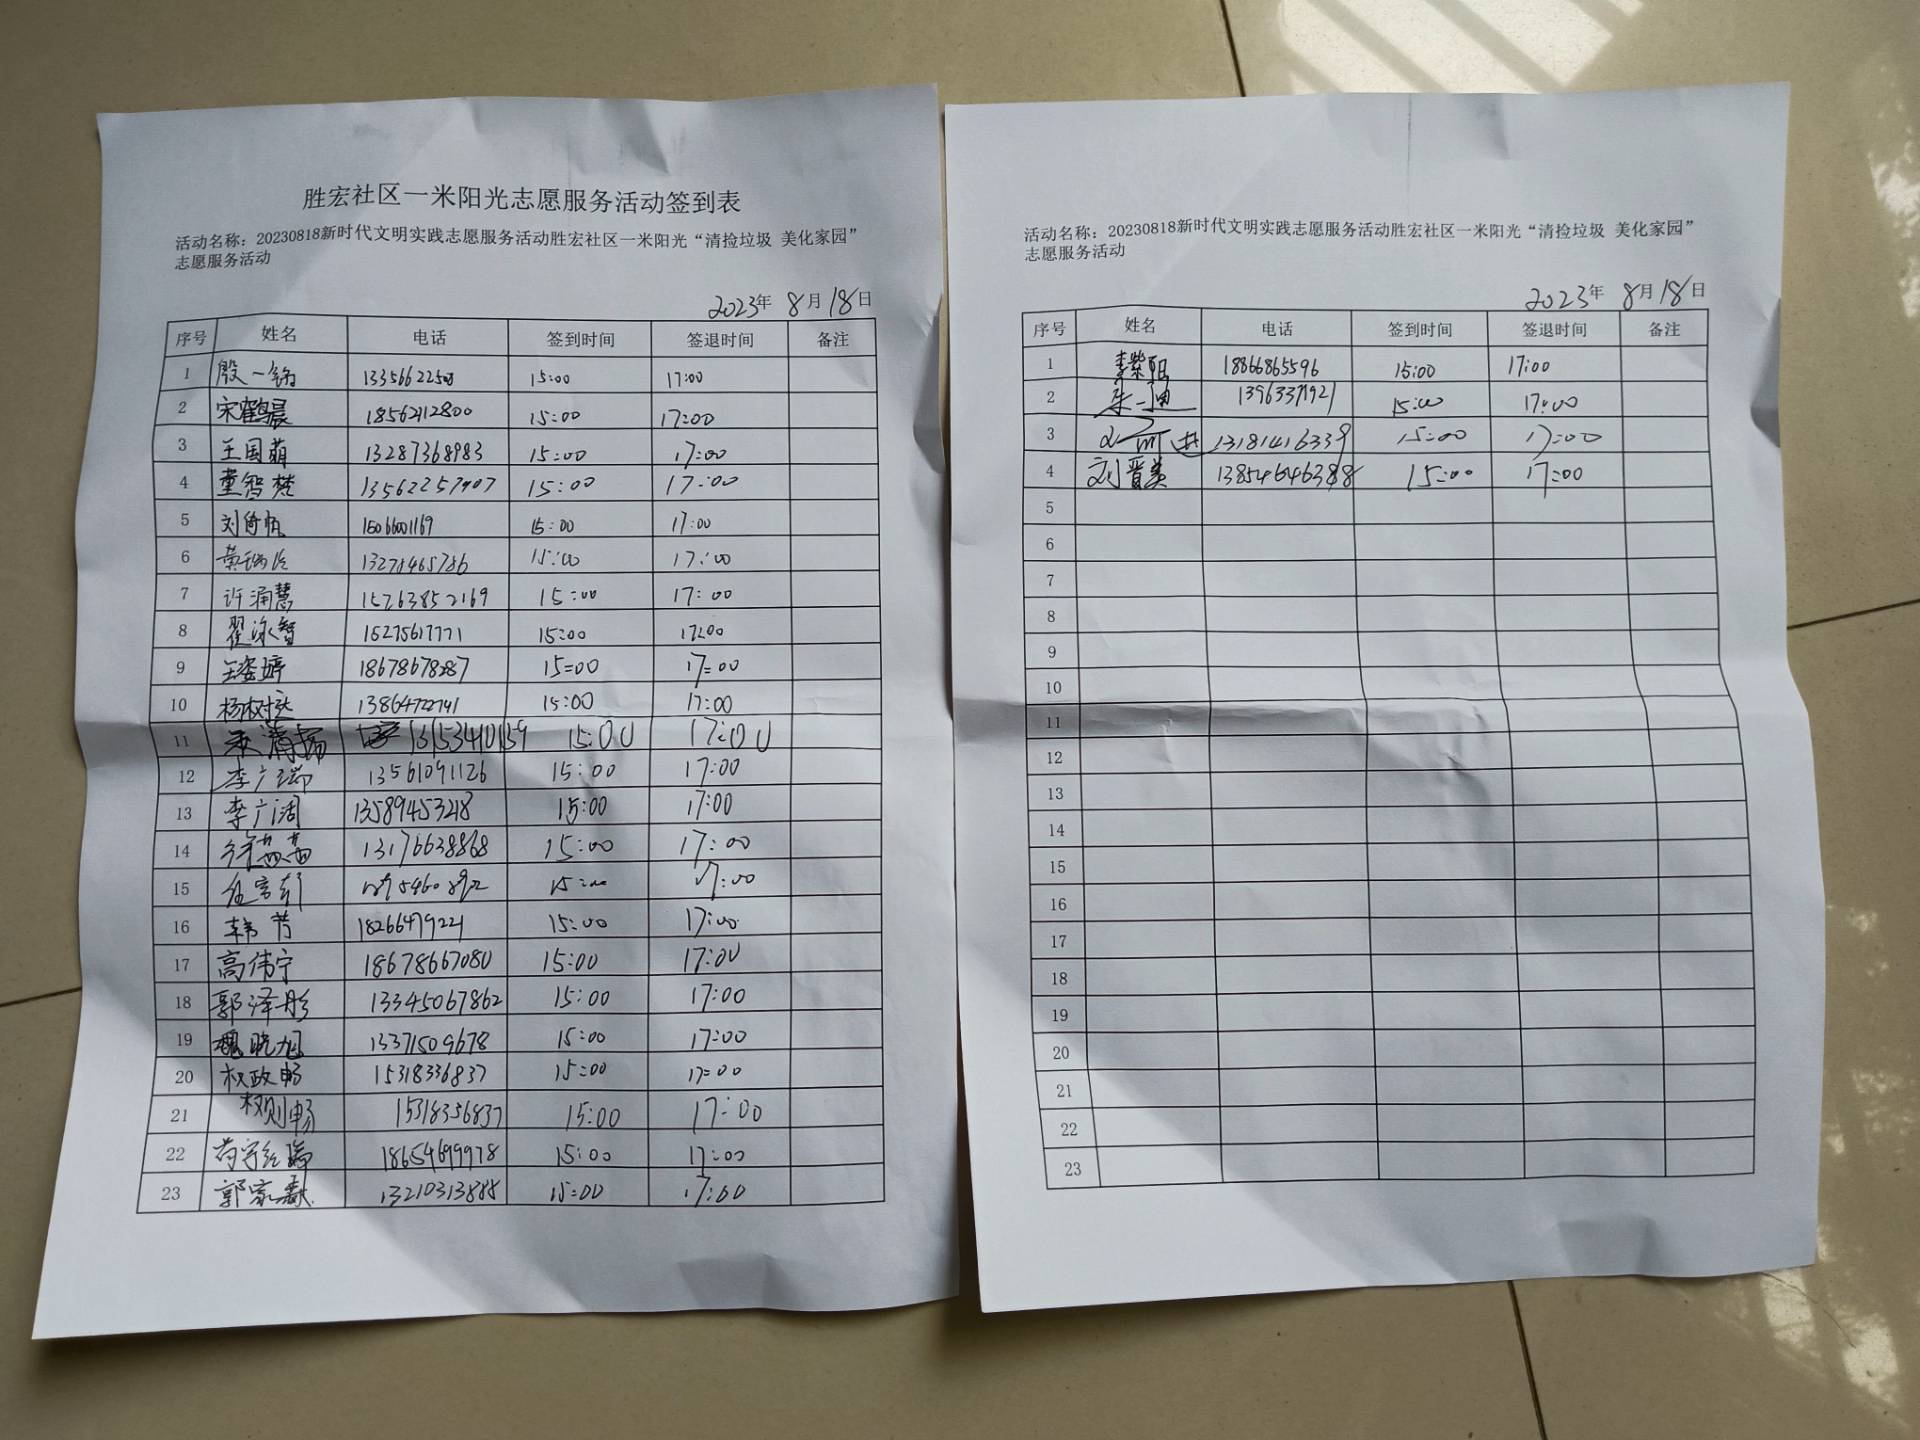 胜宏社区一米阳光志愿服务活动签到表
活动名称：20230818新时代文明实践志愿服务活动胜宏社区一米阳光“清捡垃圾 美化家园”
志愿服务活动
2023年 8月18日
序号 姓名 电话 签到时间 签退时间 备注
1 殷一铭 13356622508 15:00 17:00
2 宋鹤晨 18562112800 15:00 17:00
3 王国萌 13287368983 15:00 17:00
4 董智梵 13562257907 15:00 17:00
5 15:00 17:00
6 13278465786 15:00 17:00
7 许涵慧 15263852169 15:00 17:00
8 翟泳智 15275617771 15:00 17:00
9 王姿婷 18678678287 15:00 17:00
10 杨树达 13864722741 15:00 17:00
11 15:00 17:00
12 李广瑞 13561091126 15:00 17:00
13 李广阔 13589453248 15:00 17:00
14 徐茜茜 13176638868 15:00 17:00
15 15:00 17:00
16 韩芳 18266479221 15:00 17:00
17 高伟宁 18678667080 15:00 17:00
18 郭泽彤 13345067862 15:00 17:00
19 魏晓旭 13371509678 15:00 17:00
20 权政畅 15318336837 15:00 17:00
21 权则畅 15318336837 15:00 17:00
22 18654699978 15:00 17:00
23 郭家 13210313885 15:00 17:00
活动名称：20230818新时代文明实践志愿服务活动胜宏社区一米阳光“清捡垃圾 美化家园”
志愿服务活动
2023年 8月18日
序号 姓名 电话 签到时间 签退时间 备注
1 李紫阳 18866865596 15:00 17:00
2 13963371921 15:00 17:00
3 13181416339 15:00 17:00
4 刘晋美 15:00 17:00
5
6
7
8
9
10
11
12
13
14
15
16
17
18
19
20
21
22
23